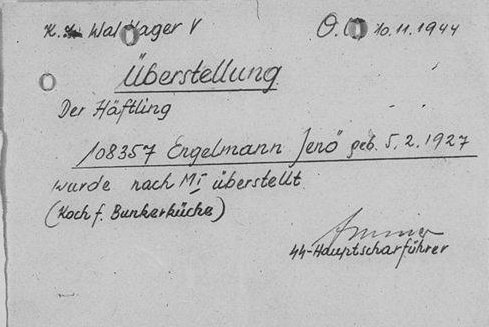 K. Waldlager V O. 10.11.1944
Überstellung
Der Häftling
108357 Engelmann Jenö geb. 5.2.1927
wurde nach MI überstellt
(Koch f. Bunkerküche)
SS-Hauptscharführer